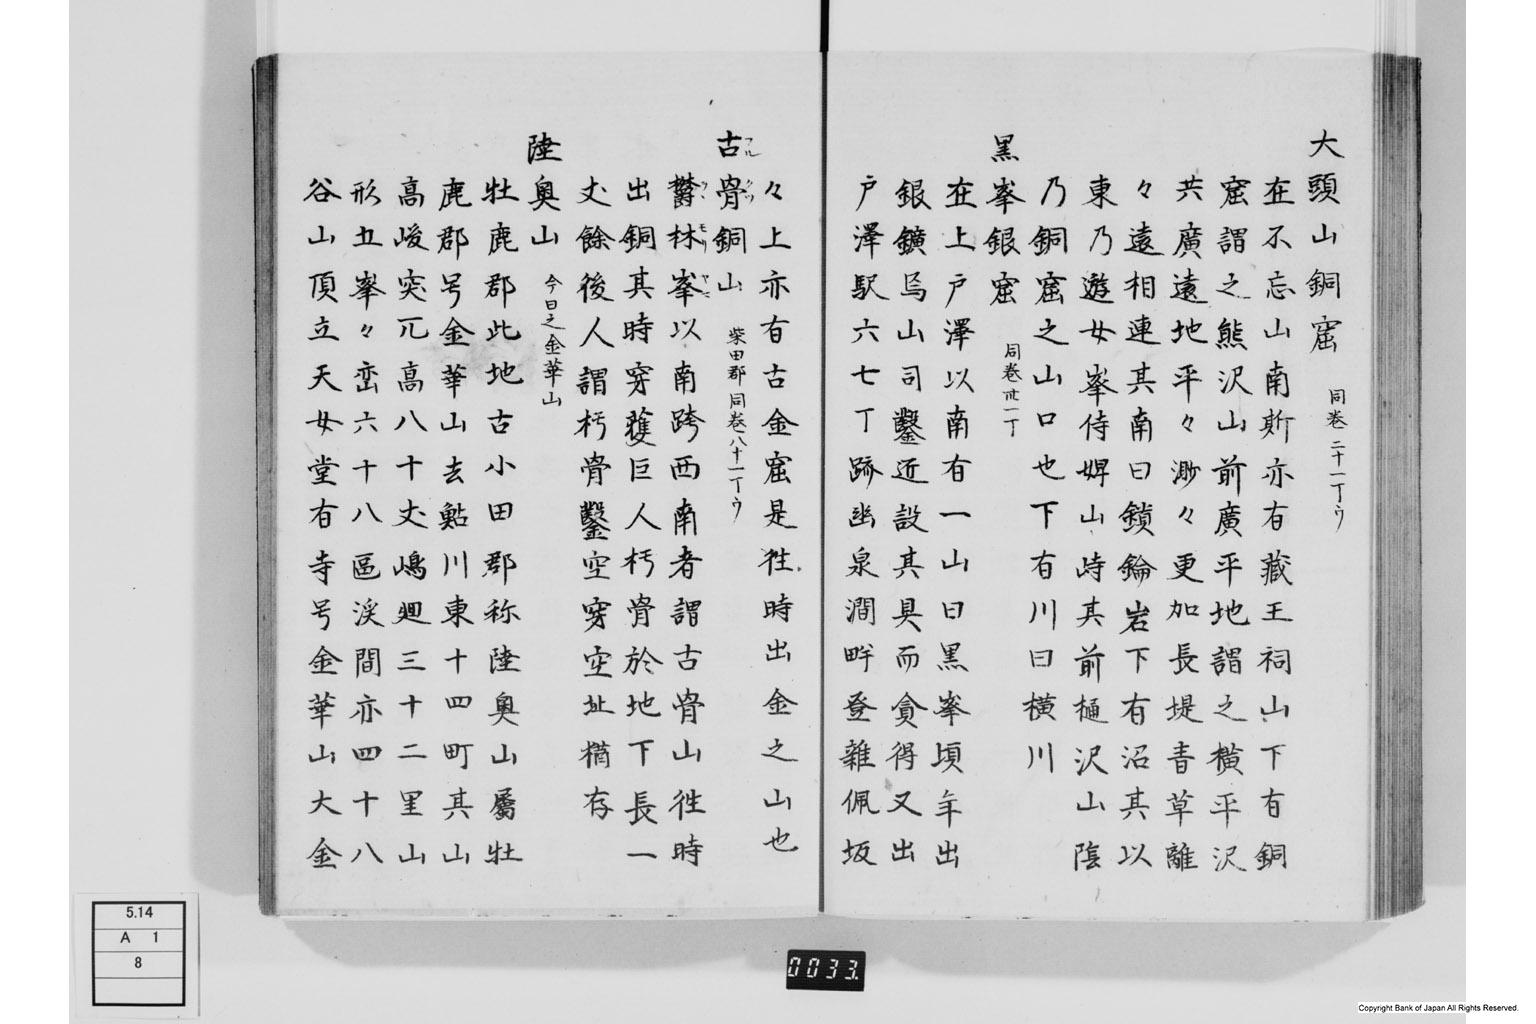 大頭山銅窟 同巻二十一丁ウ
在不忘山南斯亦有藏王祠山下有銅
窟謂之熊沢山前廣平地謂之横平沢
共廣遠地平々渺々更加長堤青草離
々遠相連其南曰鎖鑰岩下有沼其以
東乃遊女峯侍婢山峙其前樋沢山陰
乃銅窟之山口也下有川曰横川
黒峯銀窟 同巻卅一丁
在上戸澤以南有一山曰黒峯頃年出
銀鑛烏山司鑿近設其具而貪得又出
戸澤駅六七丁跡幽泉澗畔登雜佩坂
々上亦有古金窟是往時出金之山也
古骨銅山 柴田郡同巻八十一丁ウ
欝林峯以南跨西南者謂古骨山往時
出銅其時穿獲巨人朽骨於地下長一
丈餘後人謂朽骨鑿空穿空址猶存
陸奥山 今日之金華山
牡鹿郡此地古小田郡称陸奥山屬牡
鹿郡号金華山去鮎川東十四町其山
高峻突兀高八十丈嶋廻三十二里山
形五峯々巒六十八區渓間亦四十八
谷山頂立天女堂有寺号金華山大金
5.14
A 1
8
0033.
Copyright Bank of Japan All Rights Reserved.